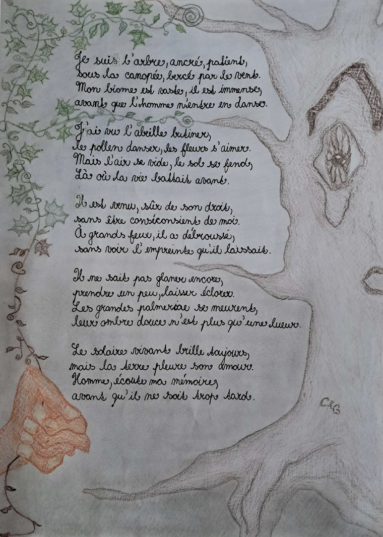 Je suis l'arbre, ancré, patient,
sous la canopée, bercé par le vent.
Mon biome est vaste, il est immense,
avant que l'homme n'entre en danse.
J'ai vu l'abeille butiner,
le pollen danser, les fleurs s'aimer.
Mais l'air se vide, le sol se fend,
Là où la vie battait avant.
Il est venu, sûr de son droit,
sans être consciconscient de moi.
À grands feux, il a débroussé,
sans voir l'empreinte qu'il laissait.
Il ne sait pas glaner encore,
prendre un peu, laisser éclore.
Les grandes palmeraie se meurent,
leur ombre douce n'est plus qu'une lueur.
Le solaire vivant brille toujours,
mais la terre pleure son amour.
Homme, écoute ma mémoire,
avant qu'il ne soit trop tard.